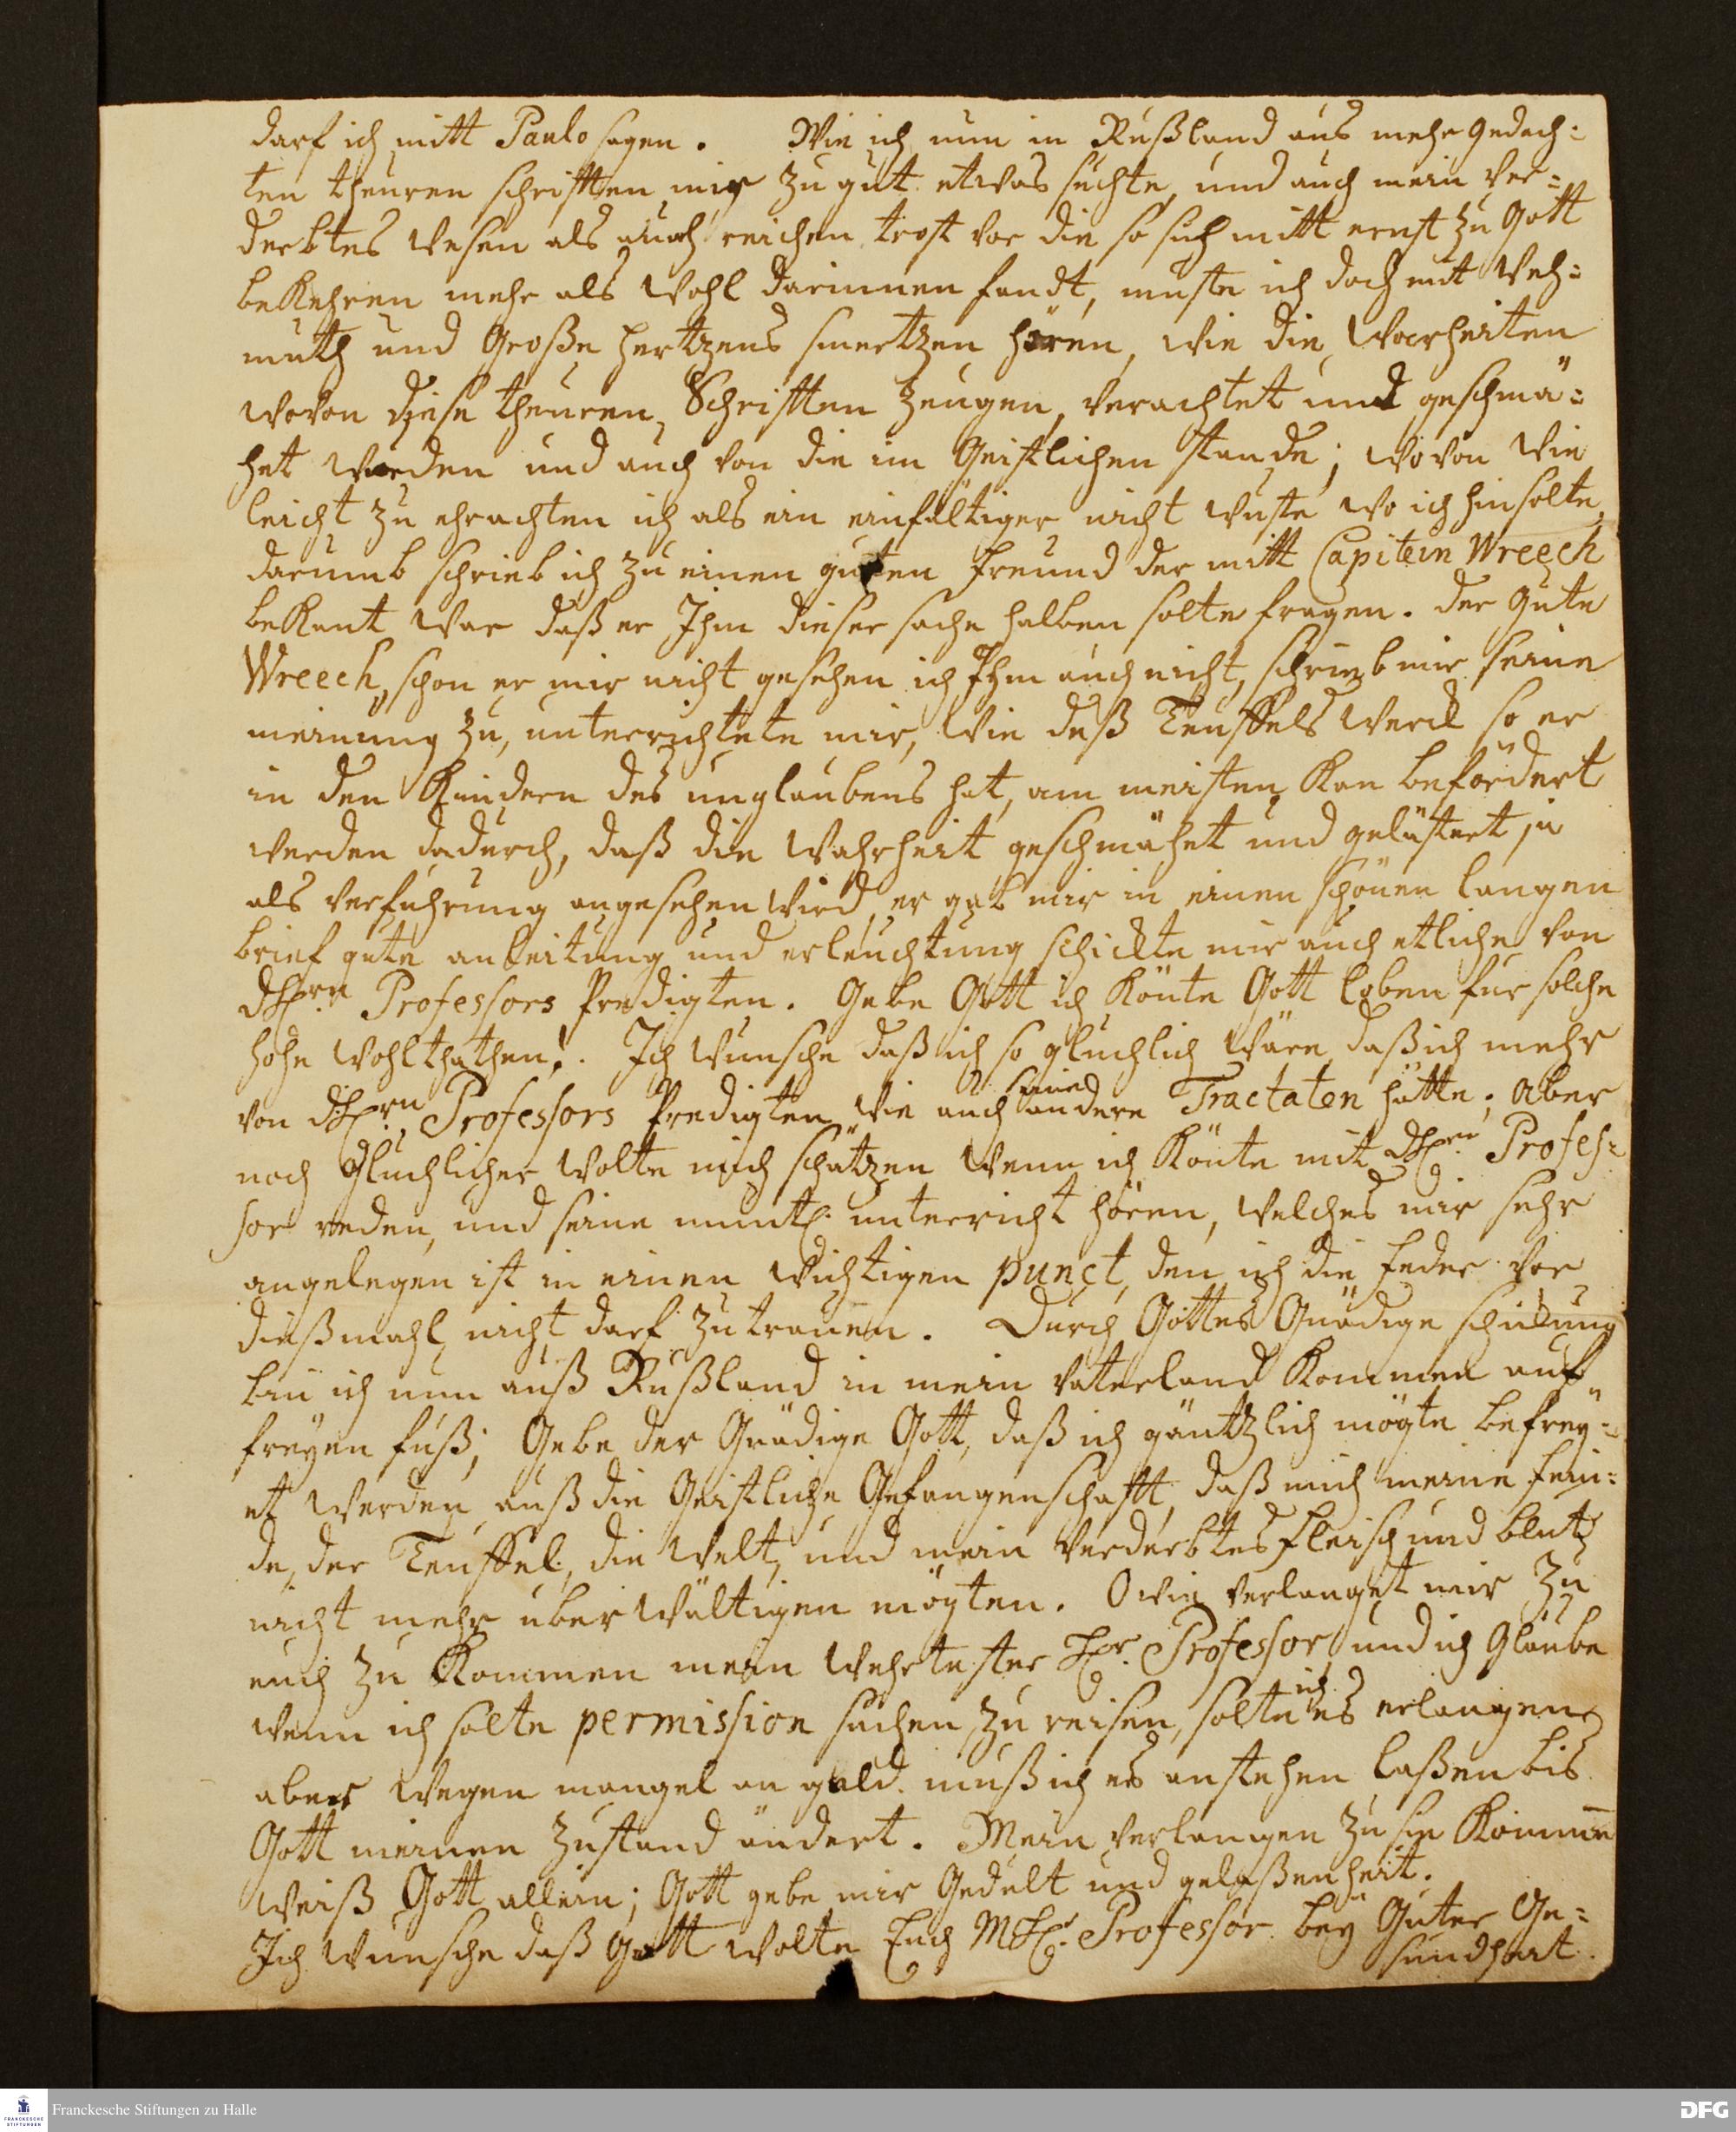 darf ich mitt Paulo sagen. Wie ich nun in Rußland aus mehr gedach:
ten theuren schrifften mir zu gut etwas suchte, und auch mein ver=
derbtes wesen als auch reichen trost vor die so sich mitt ernst zu Gott
bekehren mehr als wohl darinnen fandt, muste ich doch mit weh=
muth und Große hertzens smertzen hören, wie die warheiten
wovon diese theuren Schrifften zeugen, verachtet und geschmä=
het werden und auch von die im Geistlichen stande; wovon wie
leicht zu erachten ich als ein einfältiger nicht wuste wo ich hin solte,
darumb schrieb ich zu einen guten freund der mitt Capitein Wreech
bekant war daß er Ihm dieser sache halben solte fragen. der gute
Wreech, schon er mir nicht gesehen ich Ihm auch nicht, schrieb mir seine
meinung zu, unterrichtete mir, wie daß Teuffels werck so er
in den Kindern des unglaubens hat, am meisten kan befördert
werden dadurch, daß die Wahrheit geschmähet und gelästert, ja
als verfuhrung angesehen wird, er gab mir in einen schönen langen
brief gute anleitung und erleuchtung schickte mir auch etliche von
dHrn Professors Predigten. Gebe Gott ich könte Gott loben fur solche
hohe wohlthathen. Ich wunsche daß ich so gluchlich wäre, daß ich mehr
von dHrn Professors Predigten, wie auch andere Tractaten hätte; aber
seine
noch Gluchlicher wolte mich schätzen wenn ich könte mit dHrn Profes=
sor reden, und seine muntl. unterricht hören, welches mir sehr
angelegen ist in einen wichtigen punct, den ich die feder vor
dießmahl nicht darf zutrauen. Durch Gottes Gnädige schickung
bin ich nun auß Rußland in mein vaterland kommen auf
freyen fuß; Gebe der Gnädige Gott, daß ich gäntzlich mögte befrey=
et werden auß die Geistliche Gefangenschafft, daß mich meine fein=
de, der Teuffel, die Welt, und mein verderbtes fleisch und bluth
nicht mehr uberwältigen mögten. O wie verlanget mir zu
euch zu kommen mein wehrtester Hr. Professor, und ich Glaube
wenn ich solte permission suchen zu reisen, solte ich es erlangen,
aber wegen mangel an geld muß ich es anstehen laßen bis
Gott meinen zustand ändert. Mein verlangen zu sie kommen
weiß Gott allein; Gott gebe mir Gedult und gelaßenheit.
Ich wunsche daß Gott wolte Euch MHr. Professor bey Guter Ge=
sundheit.
Franckesche Stiftungen zu Halle
FRANCKESCHE STIFTUNGEN
DFG